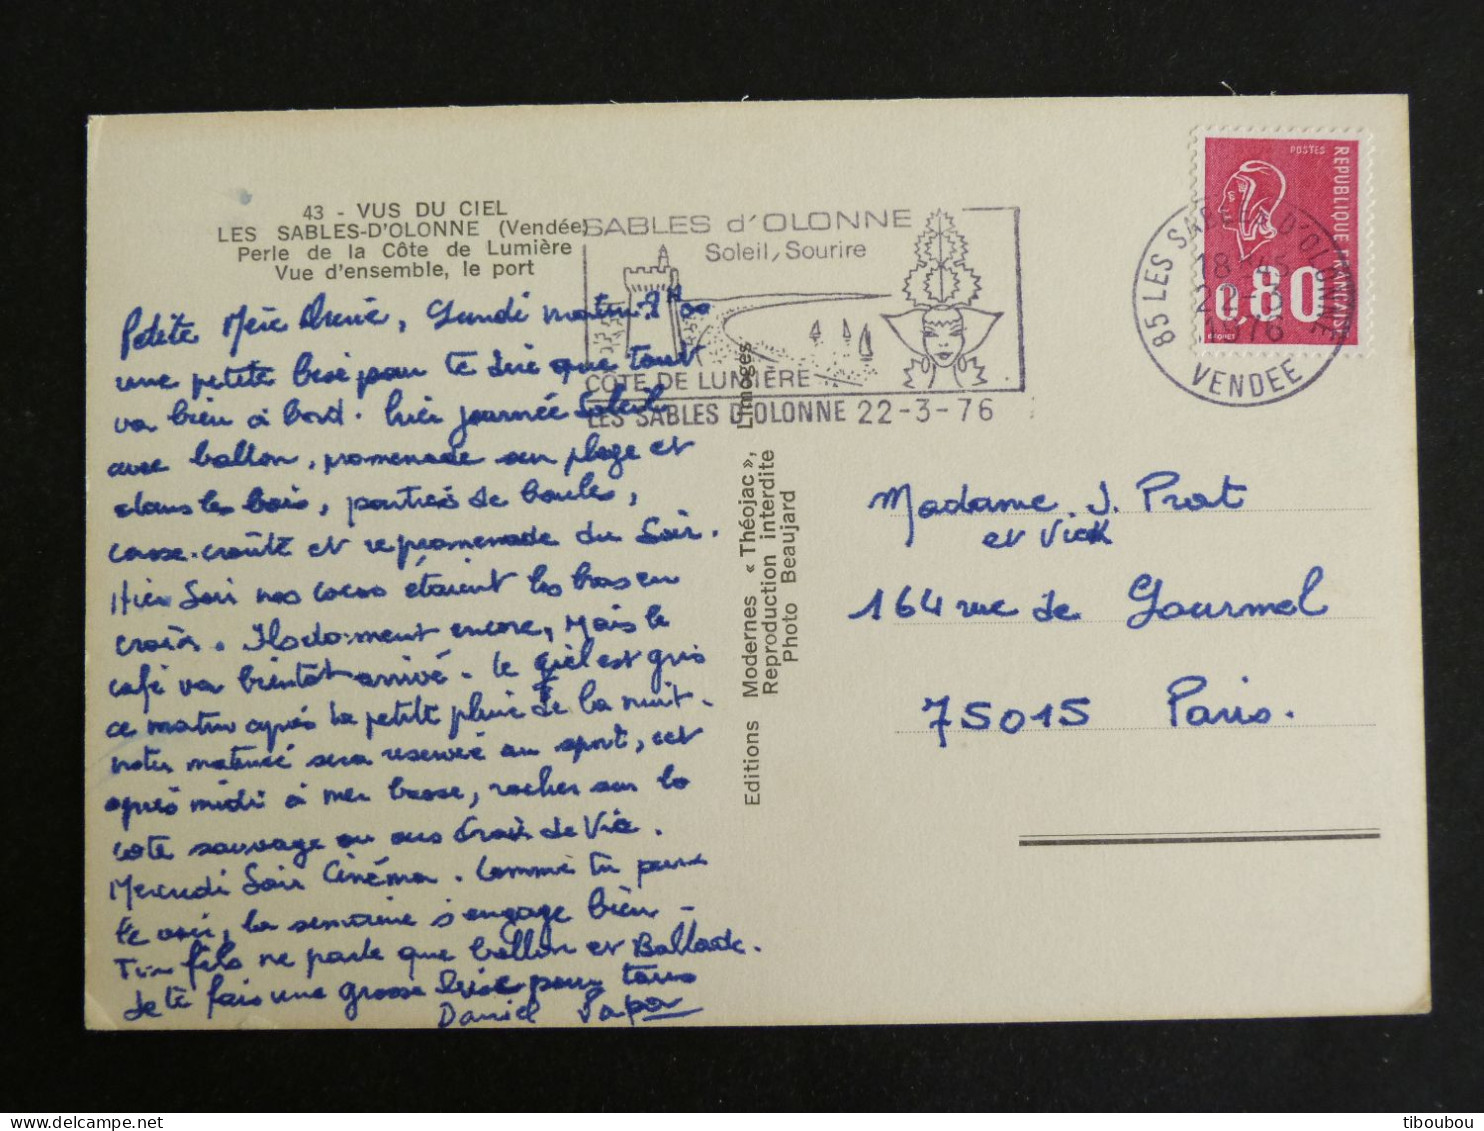 43 - VUS DU CIEL
LES SABLES-D'OLONNE (Vendée)
Perle de la Côte de Lumière
Vue d'ensemble, le port
SABLES d'OLONNE
Soleil, Sourire
CÔTE DE LUMIÈRE
LES SABLES D'OLONNE 22-3-76
POSTES
REPUBLIQUE FRANÇAISE
0,80
85 LES SABLES D'OLONNE
18 H45
1976
VENDEE
Petite Mère, Lundi matin
une petite bise pour te dire que tout
va bien à bord. hier journée Soleil
avec ballon, promenade sur plage et
dans les bois, parties de boules,
casse-croûte et repromenade du Soir.
Hier Soir nos cocos étaient les bras en
croix. Ils dorment encore, Mais le
café va bientôt arrivé. Le ciel est gris
ce matin après la petite pluie de la nuit.
notre matinée sera reservée au sport, cet
après midi à mer basse, rocher sur la
cote sauvage ou sus Croix de Vie.
Mercredi Soir Cinéma. Comme tu peux
le voir, la semaine s'engage bien -
Ton fils ne parle que ballon et Ballade.
Je te fais une grosse bise pour tous
Daniel Papa
Editions Modernes « Théojac », Limoges
Reproduction interdite
Photo Beaujard
Madame J. Prat
et Vick
164 rue de Lourmel
75015 Paris.
tiboubou